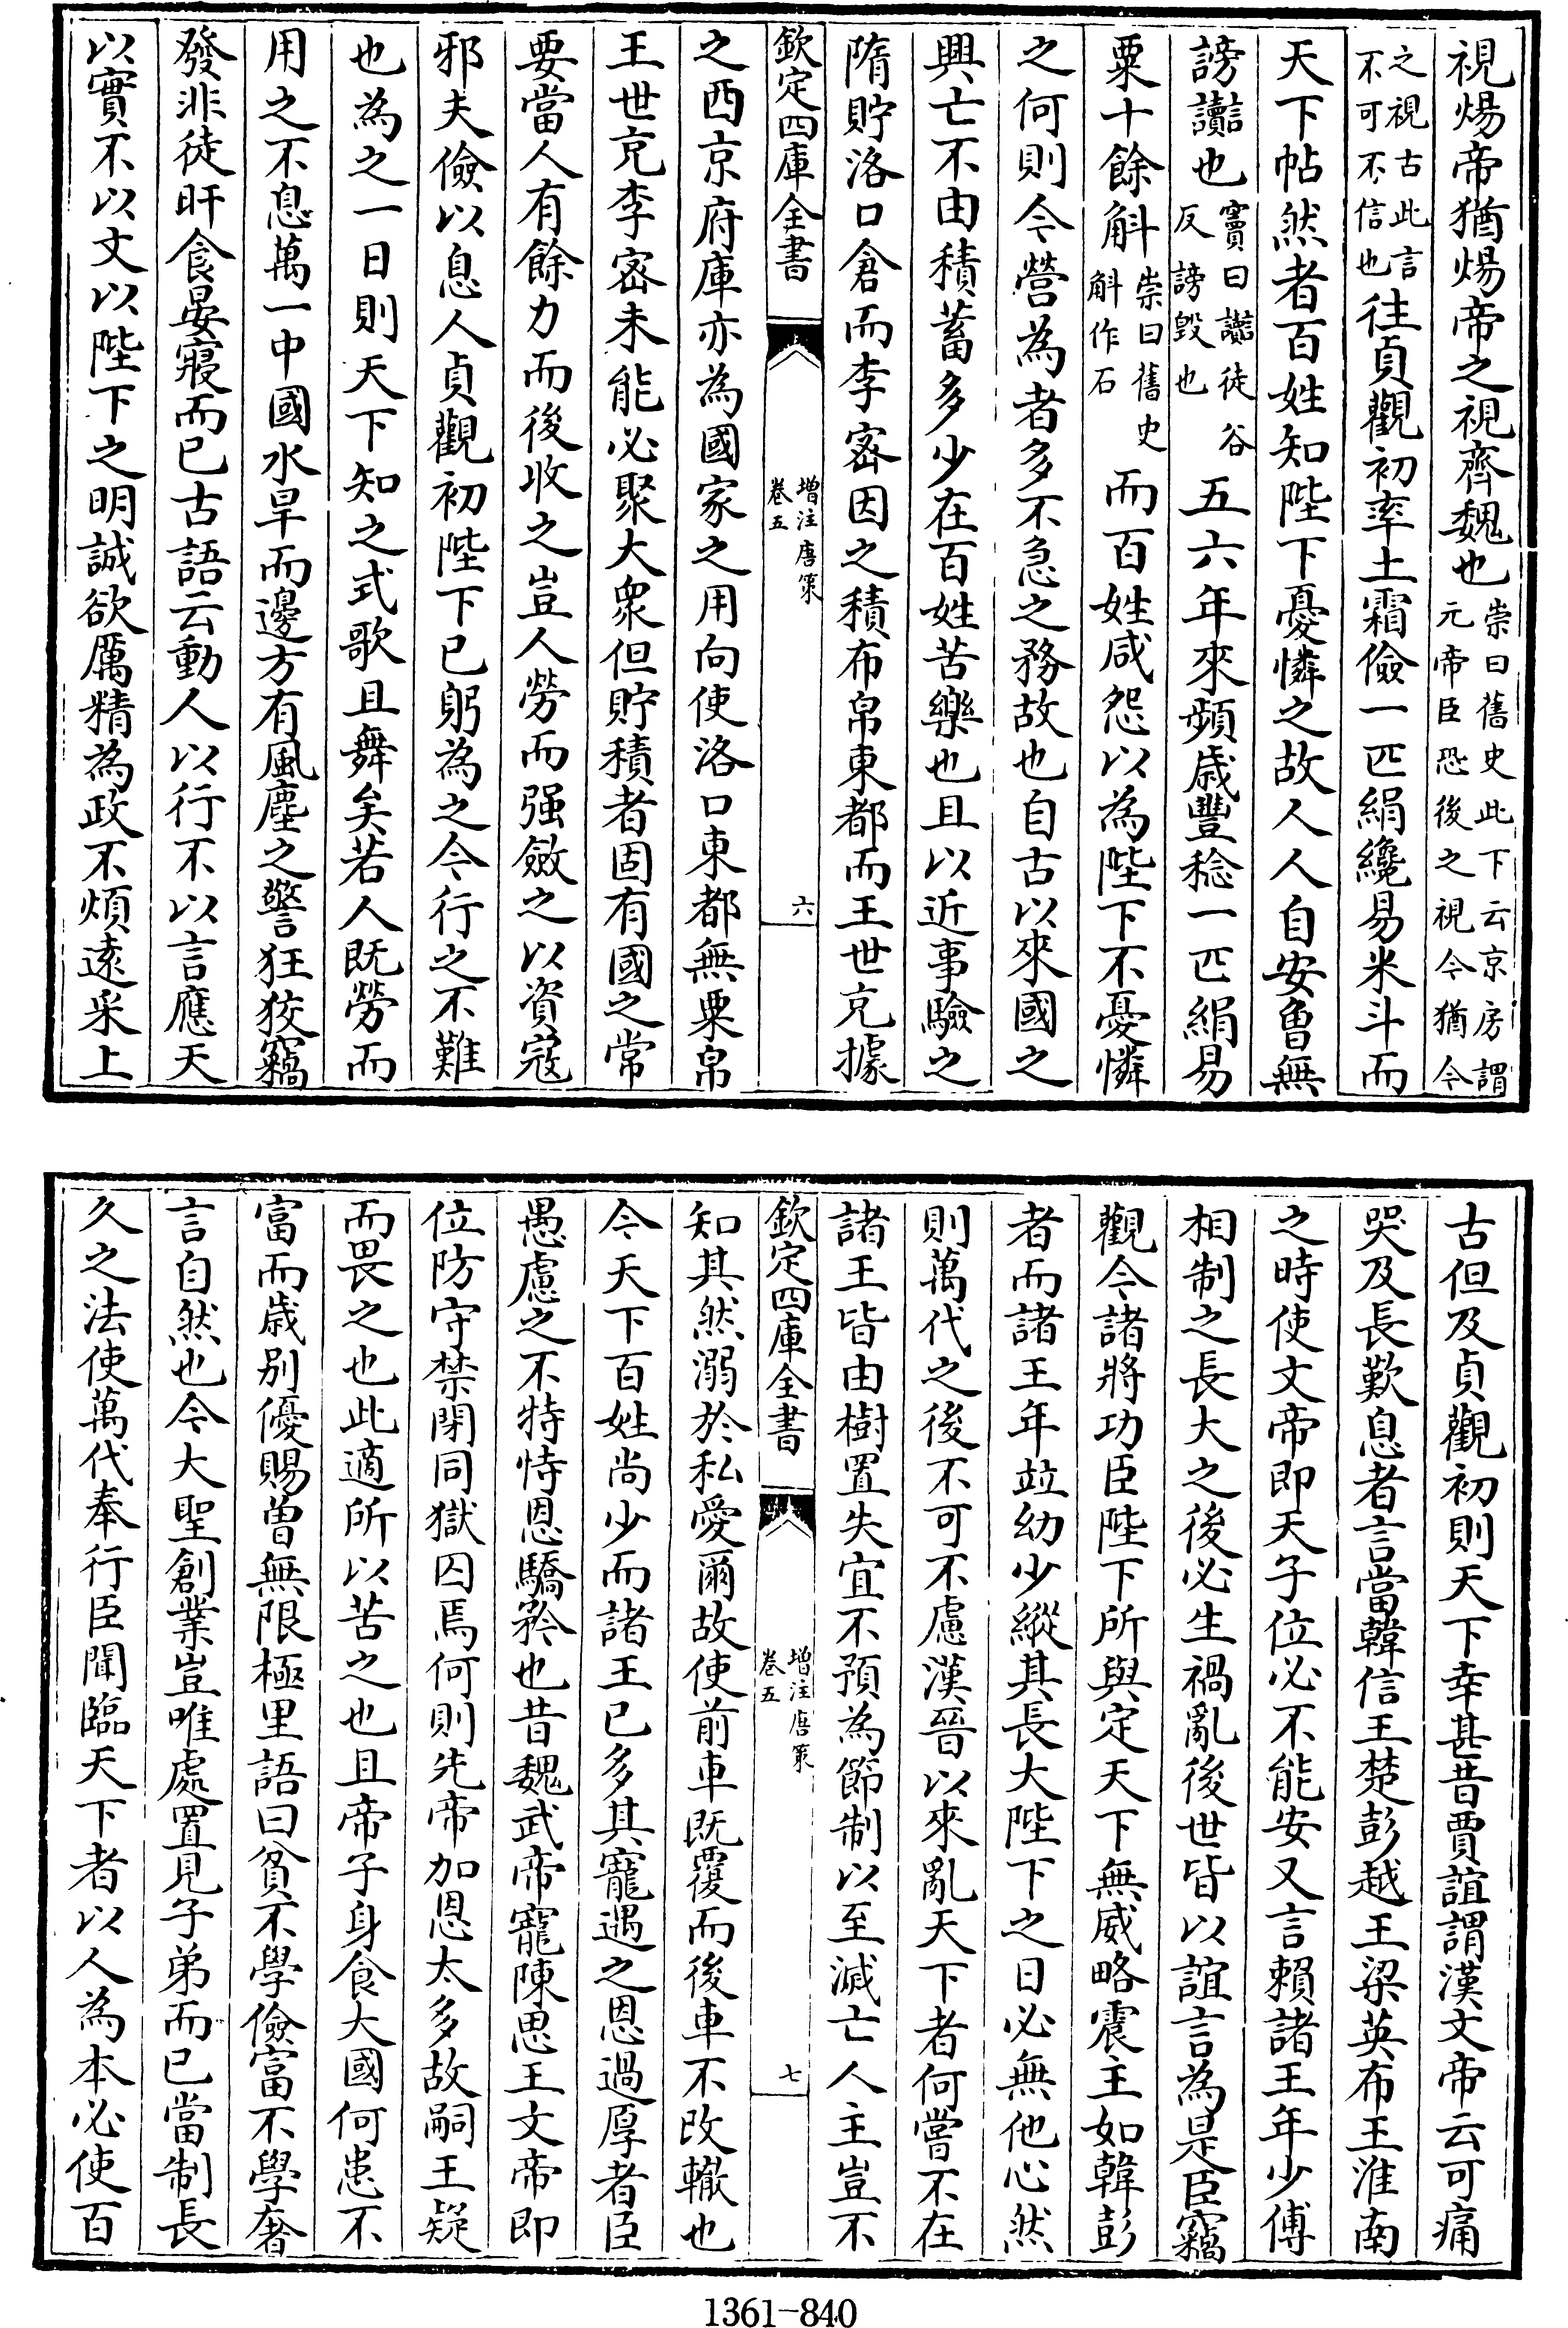 視煬帝猶煬帝之視齊魏也崇曰舊史此下云京房謂元帝臣恐後之視今猶今
之視古此言不可不信也往貞觀初率土霜儉一匹絹纔易米斗而
天下帖然者百姓知陛下憂憐之故人人自安曾無
謗讟也竇曰讟徒谷反謗毀也五六年來頻歲豐稔一匹絹易
粟十餘斛崇曰舊史斛作石而百姓咸怨以為陛下不憂憐
之何則今營為者多不急之務故也自古以來國之
興亡不由積蓄多少在百姓苦樂也且以近事驗之
隋貯洛口倉而李密因之積布帛東都而王世充據
欽定四庫全書
增注唐策
卷五
六
之西京府庫亦為國家之用向使洛口東都無粟帛
王世充李密未能必聚大衆但貯積者固有國之常
要當人有餘力而後收之豈人勞而强斂之以資寇
邪夫儉以息人貞觀初陛下已躬為之今行之不難
也為之一日則天下知之式歌且舞矣若人既勞而
用之不息萬一中國水旱而邊方有風塵之警狂狡竊
發非徒旰食晏寢而已古語云動人以行不以言應天
以實不以文以陛下之明誠欲厲精為政不煩遠采上
古但及貞觀初則天下幸甚昔賈誼謂漢文帝云可痛
哭及長歎息者言當韓信王楚彭越王梁英布王淮南
之時使文帝即天子位必不能安又言賴諸王年少傅
相制之長大之後必生禍亂後世皆以誼言為是臣竊
觀今諸將功臣陛下所與定天下無威略震主如韓彭
者而諸王年竝幼少縱其長大陛下之日必無他心然
則萬代之後不可不慮漢晉以來亂天下者何嘗不在
諸王皆由樹置失宜不預為節制以至滅亡人主豈不
欽定四庫全書
增注唐策
卷五
七
知其然溺於私愛爾故使前車既覆而後車不改轍也
今天下百姓尚少而諸王已多其寵遇之恩過厚者臣
愚慮之不特恃恩驕矜也昔魏武帝寵陳思王文帝即
位防守禁閉同獄囚焉何則先帝加恩太多故嗣王疑
而畏之也此適所以苦之也且帝子身食大國何患不
富而歲别優賜曾無限極里語曰貧不學儉富不學奢
言自然也今大聖創業豈唯處置見子弟而已當制長
久之法使萬代奉行臣聞臨天下者以人為本必使百
1361-840